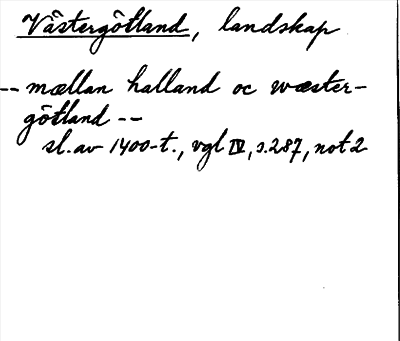 Västergötland, landskap
-- mællan halland oc wæster-
götland --
sl. av 1400-t., vgl IV, s. 287, not 2